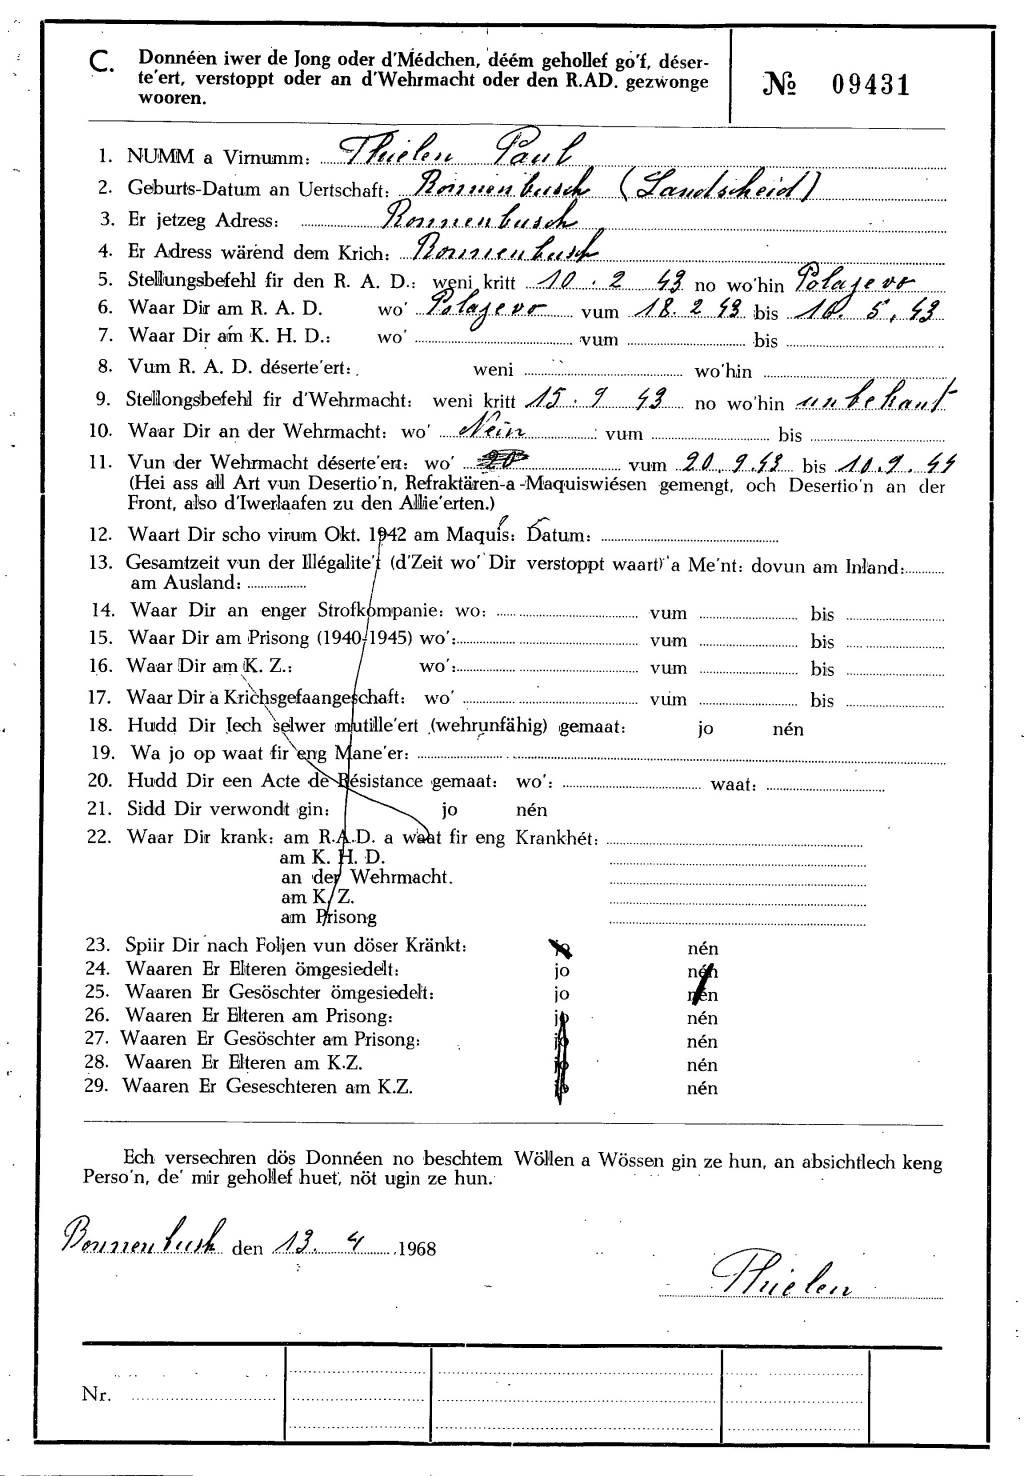 C. Donnéen iwer de Jong oder d'Médchen, déém gehollef go'f, déser-
te'ert, verstoppt oder an d'Wehrmacht oder den R.AD. gezwonge
wooren.
№ 09431
1. NUMM a Virnumm: Thielen Paul
2. Geburts-Datum an Uertschaft: Bonnenbusch (Landscheid)
3. Er jetzeg Adress: Bonnenbusch
4. Er Adress wärend dem Krich: Bonnenbusch
5. Stellungsbefehl fir den R. A. D.: weni kritt 10. 2 43 no wo'hin Polajevo
6. Waar Dir am R. A. D. wo' Polajevo vum 18. 2 43 bis 16. 5. 43
7. Waar Dir am K. H. D.: wo' vum bis
8. Vum R. A. D. déserte'ert: weni wo'hin
9. Stellongsbefehl fir d'Wehrmacht: weni kritt 15. 9 43 no wo'hin unbekant
10. Waar Dir an der Wehrmacht: wo' Nein vum bis
11. Vun der Wehrmacht déserte'ert: wo' vum 20. 9. 43 bis 10. 9. 44
(Hei ass all Art vun Desertio'n, Refraktären-a-Maquiswiésen gemengt, och Desertio'n an der
Front, also d'Iwerlaafen zu den Allie'erten.)
12. Waart Dir scho virum Okt. 1942 am Maquis: Datum:
13. Gesamtzeit vun der Illégalite't (d'Zeit wo' Dir verstoppt waart) a Me'nt: dovun am Inland:
am Ausland:
14. Waar Dir an enger Strofkompanie: wo: vum bis
15. Waar Dir am Prisong (1940-1945) wo': vum bis
16. Waar Dir am K. Z.: wo': vum bis
17. Waar Dir a Krichsgefaangeschaft: wo' vum bis
18. Hudd Dir Iech selwer mutille'ert (wehrunfähig) gemaat: jo nén
19. Wa jo op waat fir eng Mane'er:
20. Hudd Dir een Acte de Résistance gemaat: wo': waat:
21. Sidd Dir verwondt gin: jo nén
22. Waar Dir krank: am R.A.D. a waat fir eng Krankhét:
am K. H. D.
an der Wehrmacht.
am K. Z.
am Prisong
23. Spiir Dir nach Foljen vun döser Kränkt: jo nén
24. Waaren Er Elteren ömgesiedelt: jo nén
25. Waaren Er Gesöschter ömgesiedelt: jo nén
26. Waaren Er Elteren am Prisong: jo nén
27. Waaren Er Gesöschter am Prisong: jo nén
28. Waaren Er Elteren am K.Z. jo nén
29. Waaren Er Geseschteren am K.Z. jo nén
Ech versechren dös Donnéen no beschtem Wöllen a Wössen gin ze hun, an absichtlech keng
Perso'n, de' mir gehollef huet, nöt ugin ze hun.
Bonnenbusch den 13. 4 1968
Thielen
Nr.